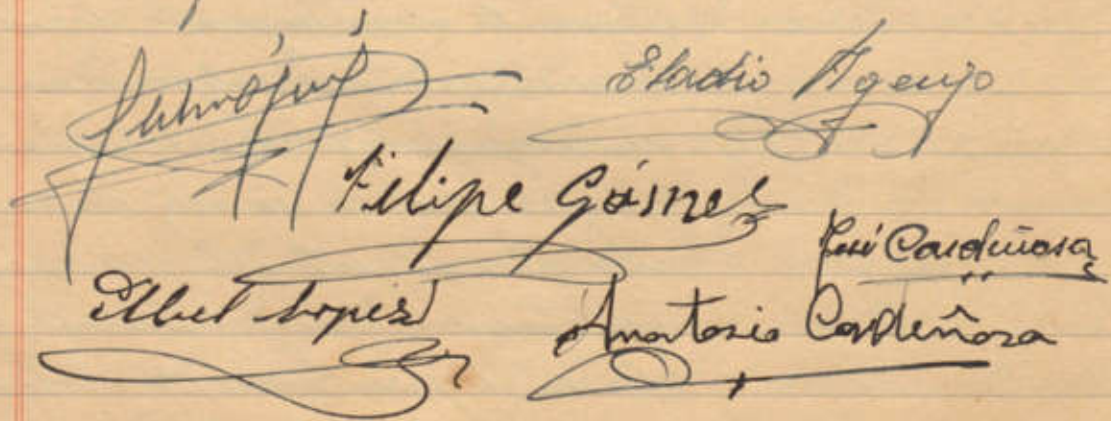 Eladio Agenjo
Filipe Gósmez
José Cardeñosa
Abel Lopez
Anastasio Cardeñosa